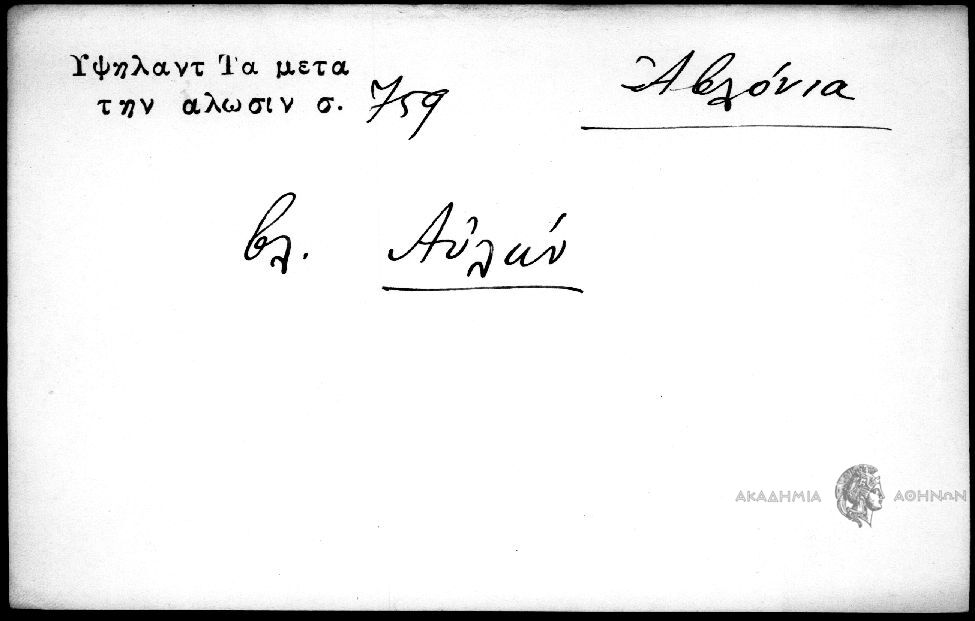 Υψηλαντ Τα μετα
την αλωσιν σ. 759
Ἀβλόνια
βλ. Αὐλών
ΑΚΑΔΗΜΙΑ ΑΘΗΝΩΝ